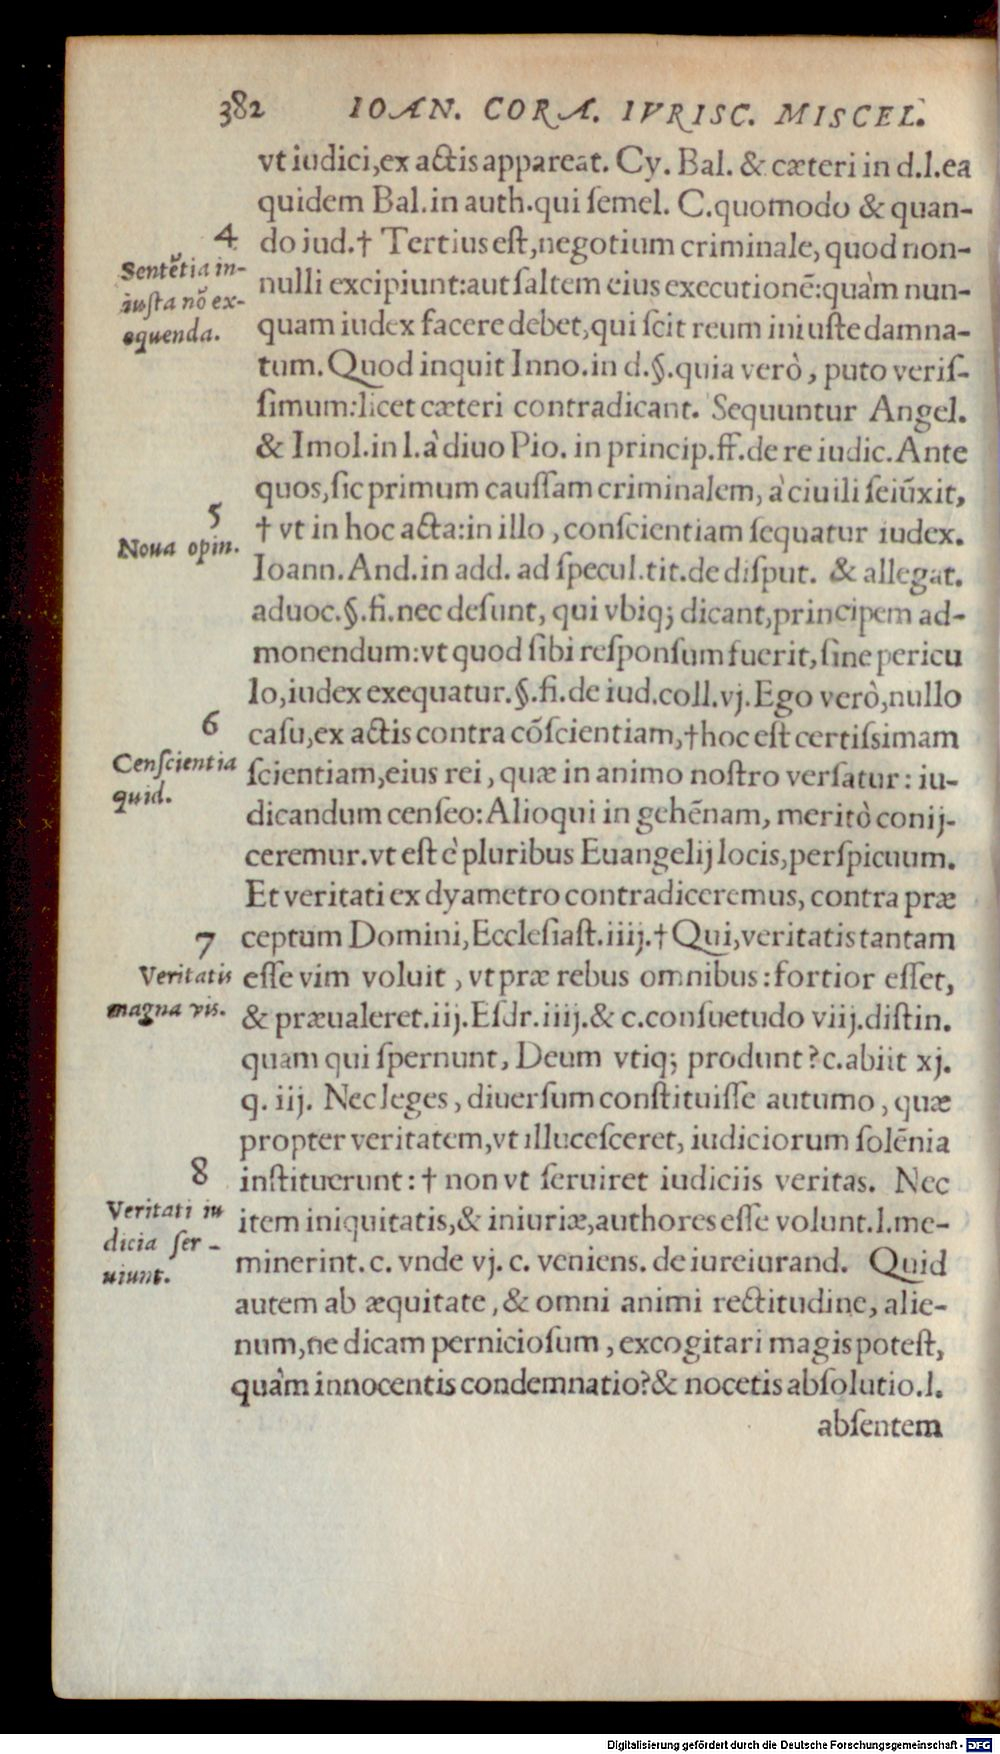 382 IOAN. CORA. IVRISC. MISCEL.
vt iudici,ex actis appareat. Cy. Bal. & cæteri in d.l.ea
quidem Bal.in auth.qui ſemel. C.quomodo & quan-
4
do iud.† Tertius eſt,negotium criminale, quod non-
Sentẽtia in-
iuſta nõ ex-
equenda.
nulli excipiunt:aut ſaltem eius executionẽ:quàm nun-
quam iudex facere debet,qui ſcit reum iniuſte damna-
tum. Quod inquit Inno.in d.§.quia verò, puto veriſ-
ſimum:licet cæteri contradicant. Sequuntur Angel.
& Imol.in l.à diuo Pio. in princip.ff.de re iudic.Ante
quos,ſic primum cauſſam criminalem, à ciuili ſeiũxit,
5
Noua opin.
† vt in hoc acta:in illo, conſcientiam ſequatur iudex.
Ioann.And.in add. ad ſpecul.tit.de diſput. & allegat.
aduoc.§.fi.nec deſunt, qui vbiq; dicant,principem ad-
monendum:vt quod ſibi reſponſum fuerit, ſine pericu
lo,iudex exequatur.§.fi.de iud.coll.vj.Ego verò,nullo
6
Cenſcientia
quid.
caſu,ex actis contra cõſcientiam,†hoc eſt certiſsimam
ſcientiam,eius rei, quæ in animo noſtro verſatur: iu-
dicandum cenſeo:Alioqui in gehẽnam, meritò conij-
ceremur.vt eſt è pluribus Euangelij locis,perſpicuum.
Et veritati ex dyametro contradiceremus, contra præ
7
Veritatis
magna vis.
ceptum Domini,Eccleſiaſt.iiij.† Qui,veritatis tantam
eſſe vim voluit, vt præ rebus omnibus:fortior eſſet,
& præualeret.iij.Eſdr.iiij.& c.conſuetudo viij.diſtin.
quam qui ſpernunt, Deum vtiq; produnt?c.abiit xj.
q. iij. Nec leges, diuerſum conſtituiſſe autumo, quæ
propter veritatem,vt illuceſceret, iudiciorum ſolẽnia
8
Veritati iu
dicia ſer-
uiunt.
inſtituerunt: † non vt ſeruiret iudiciis veritas. Nec
item iniquitatis,& iniuriæ,authores eſſe volunt.l.me-
minerint. c. vnde vj. c. veniens. de iureiurand. Quid
autem ab æquitate, & omni animi rectitudine, alie-
num,ne dicam pernicioſum, excogitari magis poteſt,
quàm innocentis condemnatio?& nocetis abſolutio.l.
abſentem
Digitalisierung gefördert durch die Deutsche Forschungsgemeinschaft - DFG